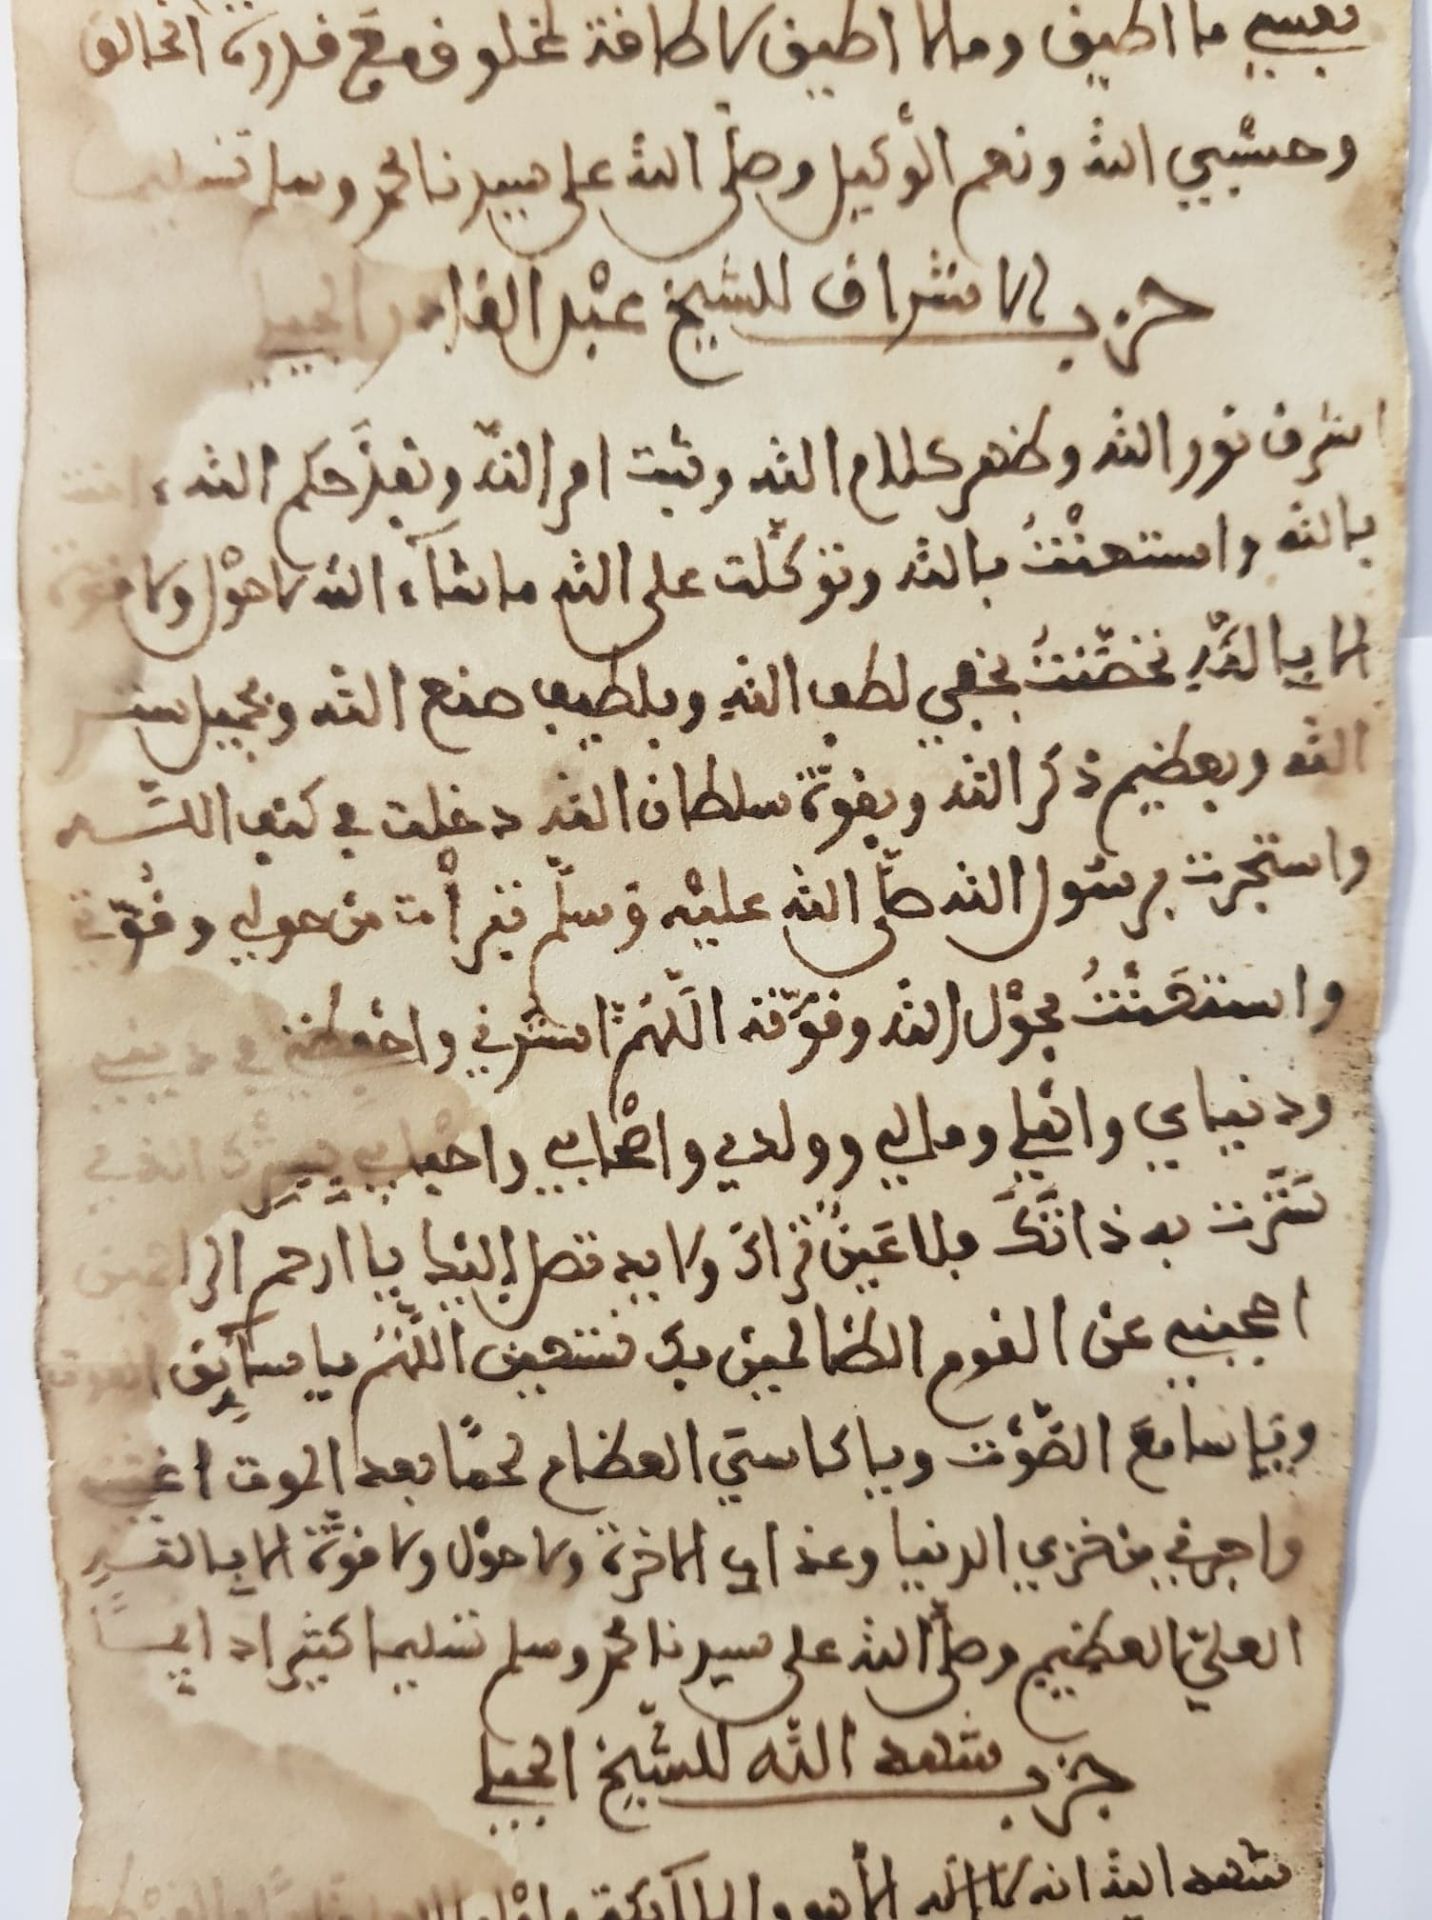 نفسي ما اطيق وما لا اطيق لا طاقة لمخلوق مع قدرة الخالق
وحسْبي الله ونعم الوكيل وصلّى الله على سيدنا محمد وسلم تسليما
حزب الاشراق للشيخ عبْد القادر الجيلي
اشرق نور الله وظهر كلام الله وثبت امر الله ونفذ حكم الله
بالله واستعنْتُ بالله وتوكّلت على الله ما شآء الله لا حوْل ولا قوة
الا بالله تحصّنتُ بخفي لطف الله وبلطيف صنع الله وبجميل ستر
الله وبعظيم ذكر الله وبقوّة سلطان الله دخلت في كنف اللــه
واستجرت برسول الله صلّى الله عليْه وَسلّم تبرأْت من حولي وقُوّتي
واستعَنْتُ بحوْل الله وقوّته اللّهُمّ استرني واحفظني في ديني
ودنياي واهْلي ومالي وولدي واصْحابي واحبابي بسِتْرك الذي
سَتَّرت به ذاتَكَ فلا عَينٌ تراكَ ولا يد تصل إليْكَ يا ارحم الراحمين
احجبني عن القوم الظالمين بك نستعين اللّهُمّ يا سابق الفوت
ويَا سامعَ الصّوْت ويا كاسيَ العظام لحمًا بعد الموت اغثني
واجرني من خزي الدنيا وعذاب الاخرة ولا حوْل ولا قوّة الا بالله
العليّ العظيم وصلّى الله على سيدنا محمد وسلم تسليما كثيرا دايما
حزب شهد الله للشّيخ الجيلي
شهد الله انه لا إله إلاّ هو والملآئكة واولوا العلم